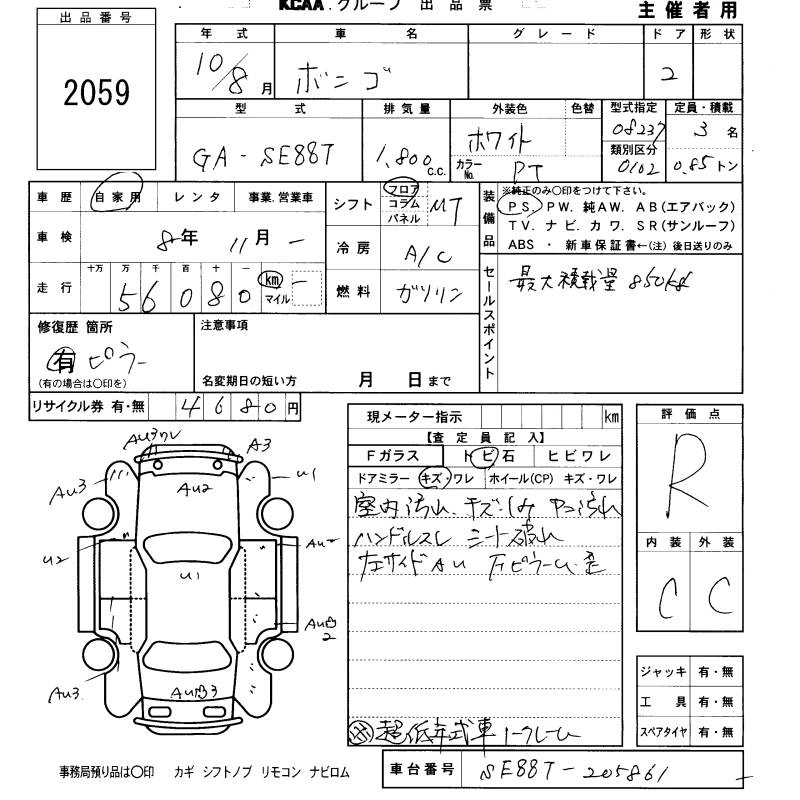 KCAA.グループ 出品票 主催者用
出品番号
2059
年式 車名 グレード ドア 形状
10/8月 ボンゴ 2
型式 排気量 外装色 色替 型式指定 定員・積載
GA-SE88T 1,800 c.c. ホワイト カラーNo. PT 08237 3名
類別区分
0102 0.85トン
車歴 自家用 レンタ 事業.営業車
車検 8年 11月 -
走行 十万 万 千 百 十 一
56080 km マイル
シフト フロア コラム パネル MT
冷房 A/C
燃料 ガソリン
装備品
※純正のみ○印をつけて下さい。
PS. PW. 純AW. AB(エアバック)
TV. ナビ. カワ. SR(サンルーフ)
ABS ・ 新車保証書←(注) 後日送りのみ
セールスポイント
最大積載量 850kg
修復歴 箇所
有 ピラー
(有の場合は○印を)
注意事項
名変期日の短い方 月 日まで
リサイクル券 有・無 4680円
現メーター指示 km
【査定員記入】
Fガラス トビ石 ヒビワレ
ドアミラー キズ・ワレ ホイール(CP) キズ・ワレ
室内汚れ キズ
ハンドルスレ シート破れ
左サイドAU
※超低年式車 ノークレーム
評価点
R
内装 外装
C C
ジャッキ 有・無
工具 有・無
スペアタイヤ 有・無
AU3ワレ A3
AU3 AU2 U1
U2 U1 AU2
AU凹2
AU3 AU凹3
事務局預り品は○印 カギ シフトノブ リモコン ナビロム
車台番号 SE88T-205861